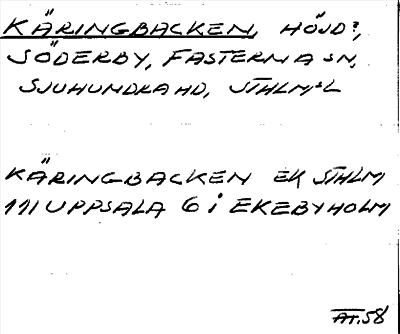 KÄRINGBACKEN, HÖJD?,
SÖDERBY, FASTERNA SN,
SJUHUNDRA HD, STHLMS L
KÄRINGBACKEN EK STHLM
111 UPPSALA 6 i EKEBYHOLM
AT.58